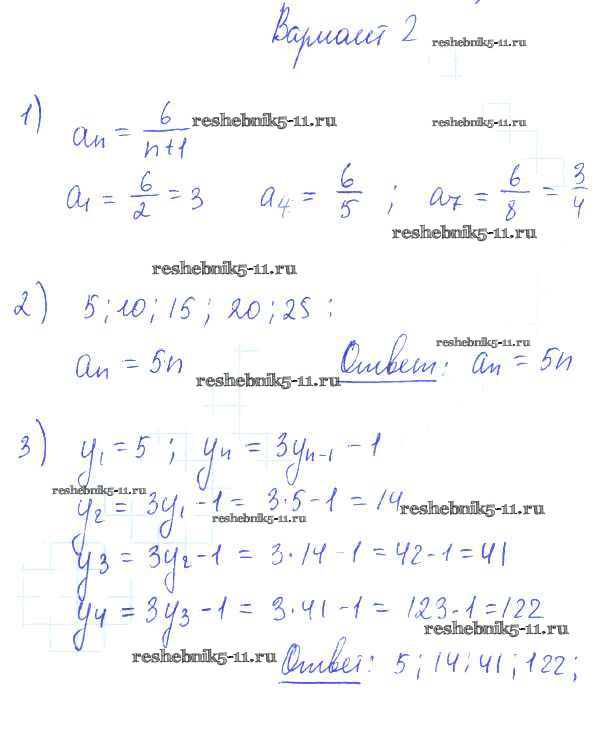 Вариант 2 reshebnik5-11.ru
1) an = 6/(n+1) reshebnik5-11.ru reshebnik5-11.ru
a1 = 6/2 = 3 a4 = 6/5 ; a7 = 6/8 = 3/4
reshebnik5-11.ru
reshebnik5-11.ru
2) 5; 10; 15; 20; 25 :
reshebnik5-11.ru
an = 5n reshebnik5-11.ru Ответ: an = 5n
3) y1 = 5 ; yn = 3yn-1 - 1
reshebnik5-11.ru
y2 = 3y1 - 1 = 3·5 - 1 = 14 reshebnik5-11.ru
reshebnik5-11.ru
y3 = 3y2 - 1 = 3·14 - 1 = 42 - 1 = 41
y4 = 3y3 - 1 = 3·41 - 1 = 123 - 1 = 122
reshebnik5-11.ru
reshebnik5-11.ru Ответ: 5; 14; 41; 122;